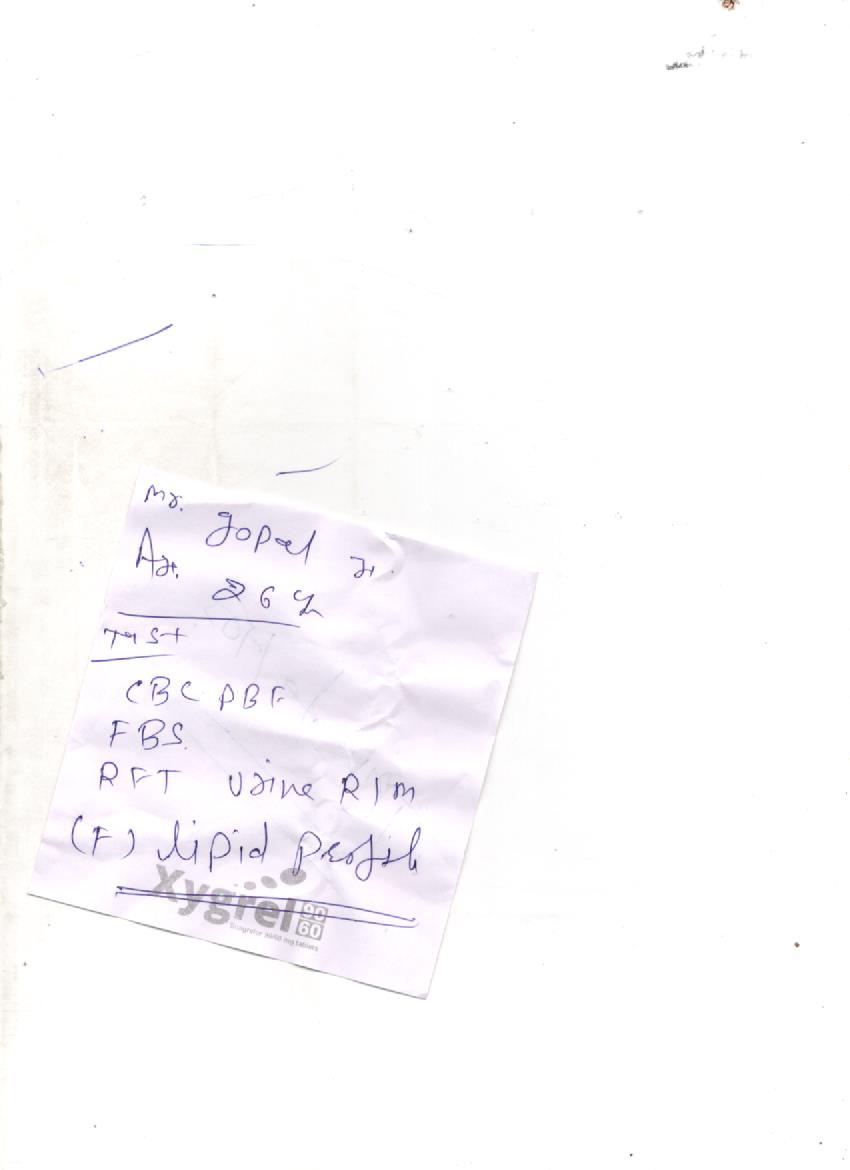 Mr.
Gopal Jr.
Ar.
26 y
Test
CBC PBF
FBS.
RFT Urine R/m
(F) lipid profile
Xygrel 90 60
Ticagrelor 90/60 mg tablets